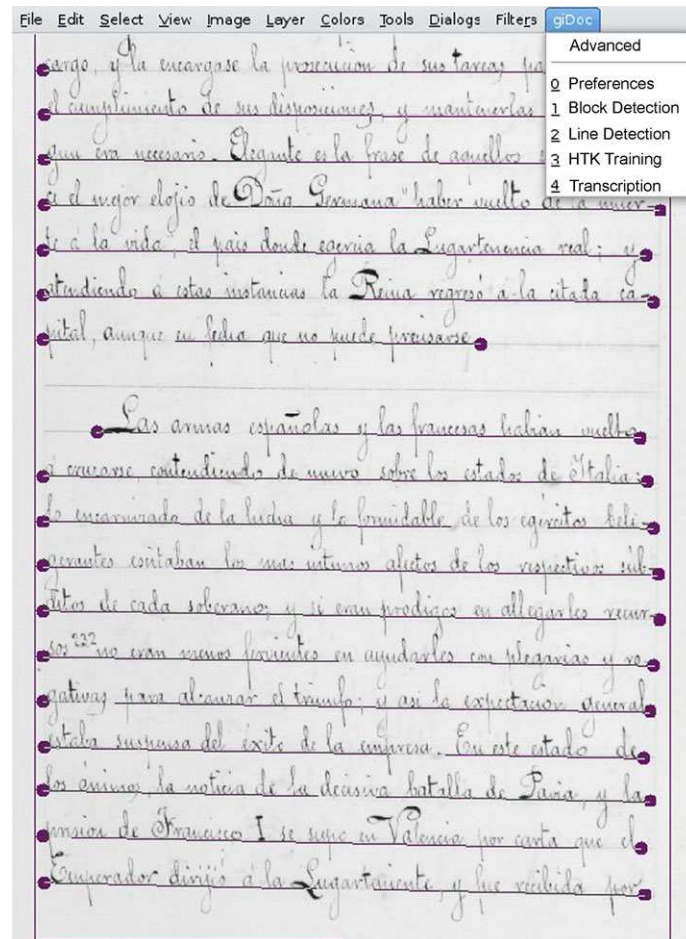 File Edit Select View Image Layer Colors Tools Dialogs Filters giDoc
Advanced
0 Preferences
1 Block Detection
2 Line Detection
3 HTK Training
4 Transcription
cargo, y la encargase la prosecucion de sus tareas pa
el cumplimiento de sus disposiciones, y mantenerlas
gun era necesario. Elegante es la frase de aquellos
si el mejor elojio de Doña Germana "haber vuelto de la muer-
te á la vida, el pais donde egercia la Lugartenencia real; y
atendiendo á estas instancias la Reina regresó á la citada ca-
pital, aunque en fecha que no puede precisarse
Las armas españolas y las francesas habian vuelto
á cruzarse, contendiendo de nuevo sobre los estados de Italia:
lo encarnizado de la lucha y lo formidable de los egércitos beli-
gerantes escitaban los mas intimos afectos de los respectivos súb-
ditos de cada soberano; y si eran prodigos en allegarles recur-
sos 232 no eran menos fervientes en ayudarles con plegarias y ro-
gativas para alcanzar el triunfo; y asi la expectacion general
estaba suspensa del éxito de la empresa. En este estado de
los ánimos, la noticia de la decisiva batalla de Pavia, y la
prision de Francisco I se supo en Valencia por carta que el
Emperador dirijió á la Lugarteniente, y fue recibida por